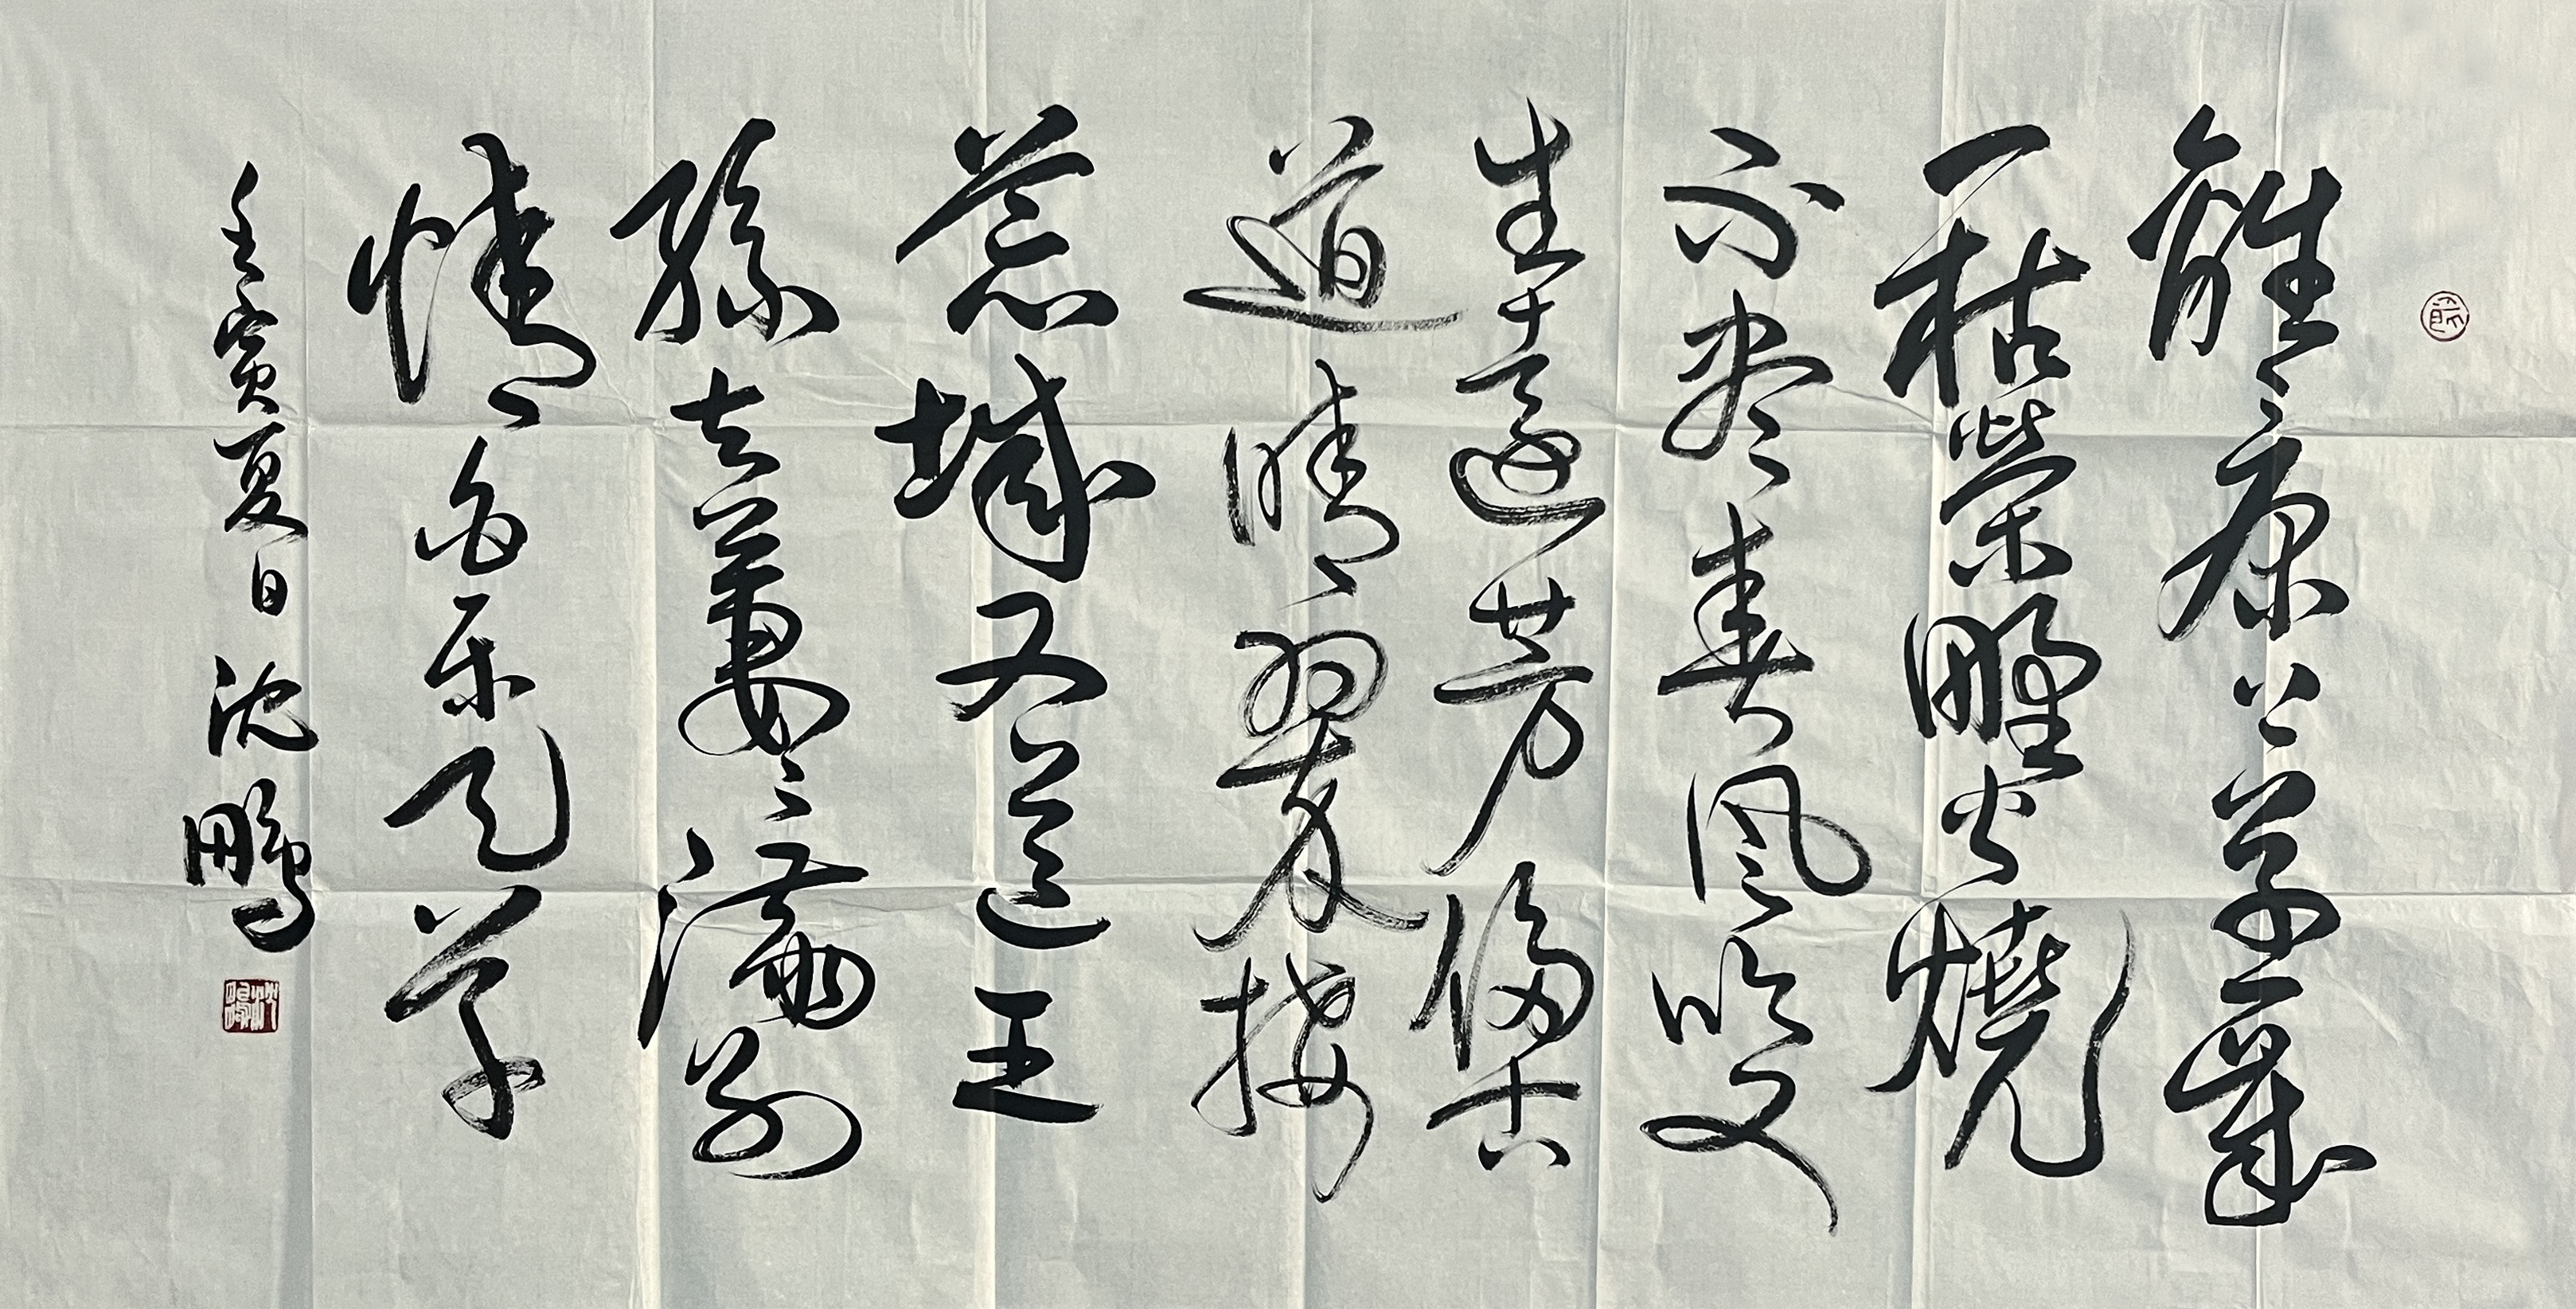 離離原上草一歲
一枯榮野火燒
不盡春風吹又
生遠芳侵古
道晴翠接
荒城又送王
孫去萋萋滿別
情 白乐天草
壬寅夏日沈鵬
沈鵬